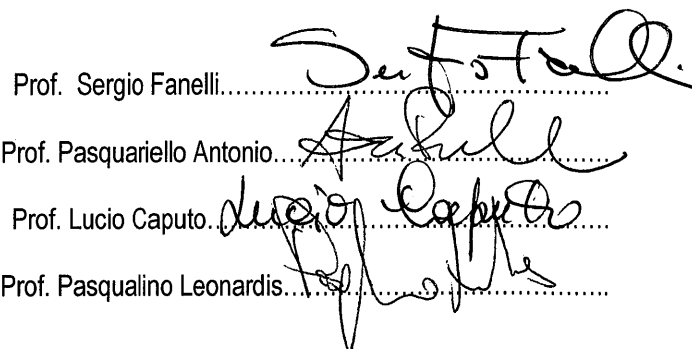 Prof. Sergio Fanelli.......................................................... Sergio Fanelli
Prof. Pasquariello Antonio..................................................
Prof. Lucio Caputo............................................................ Lucio Caputo
Prof. Pasqualino Leonardis................................................